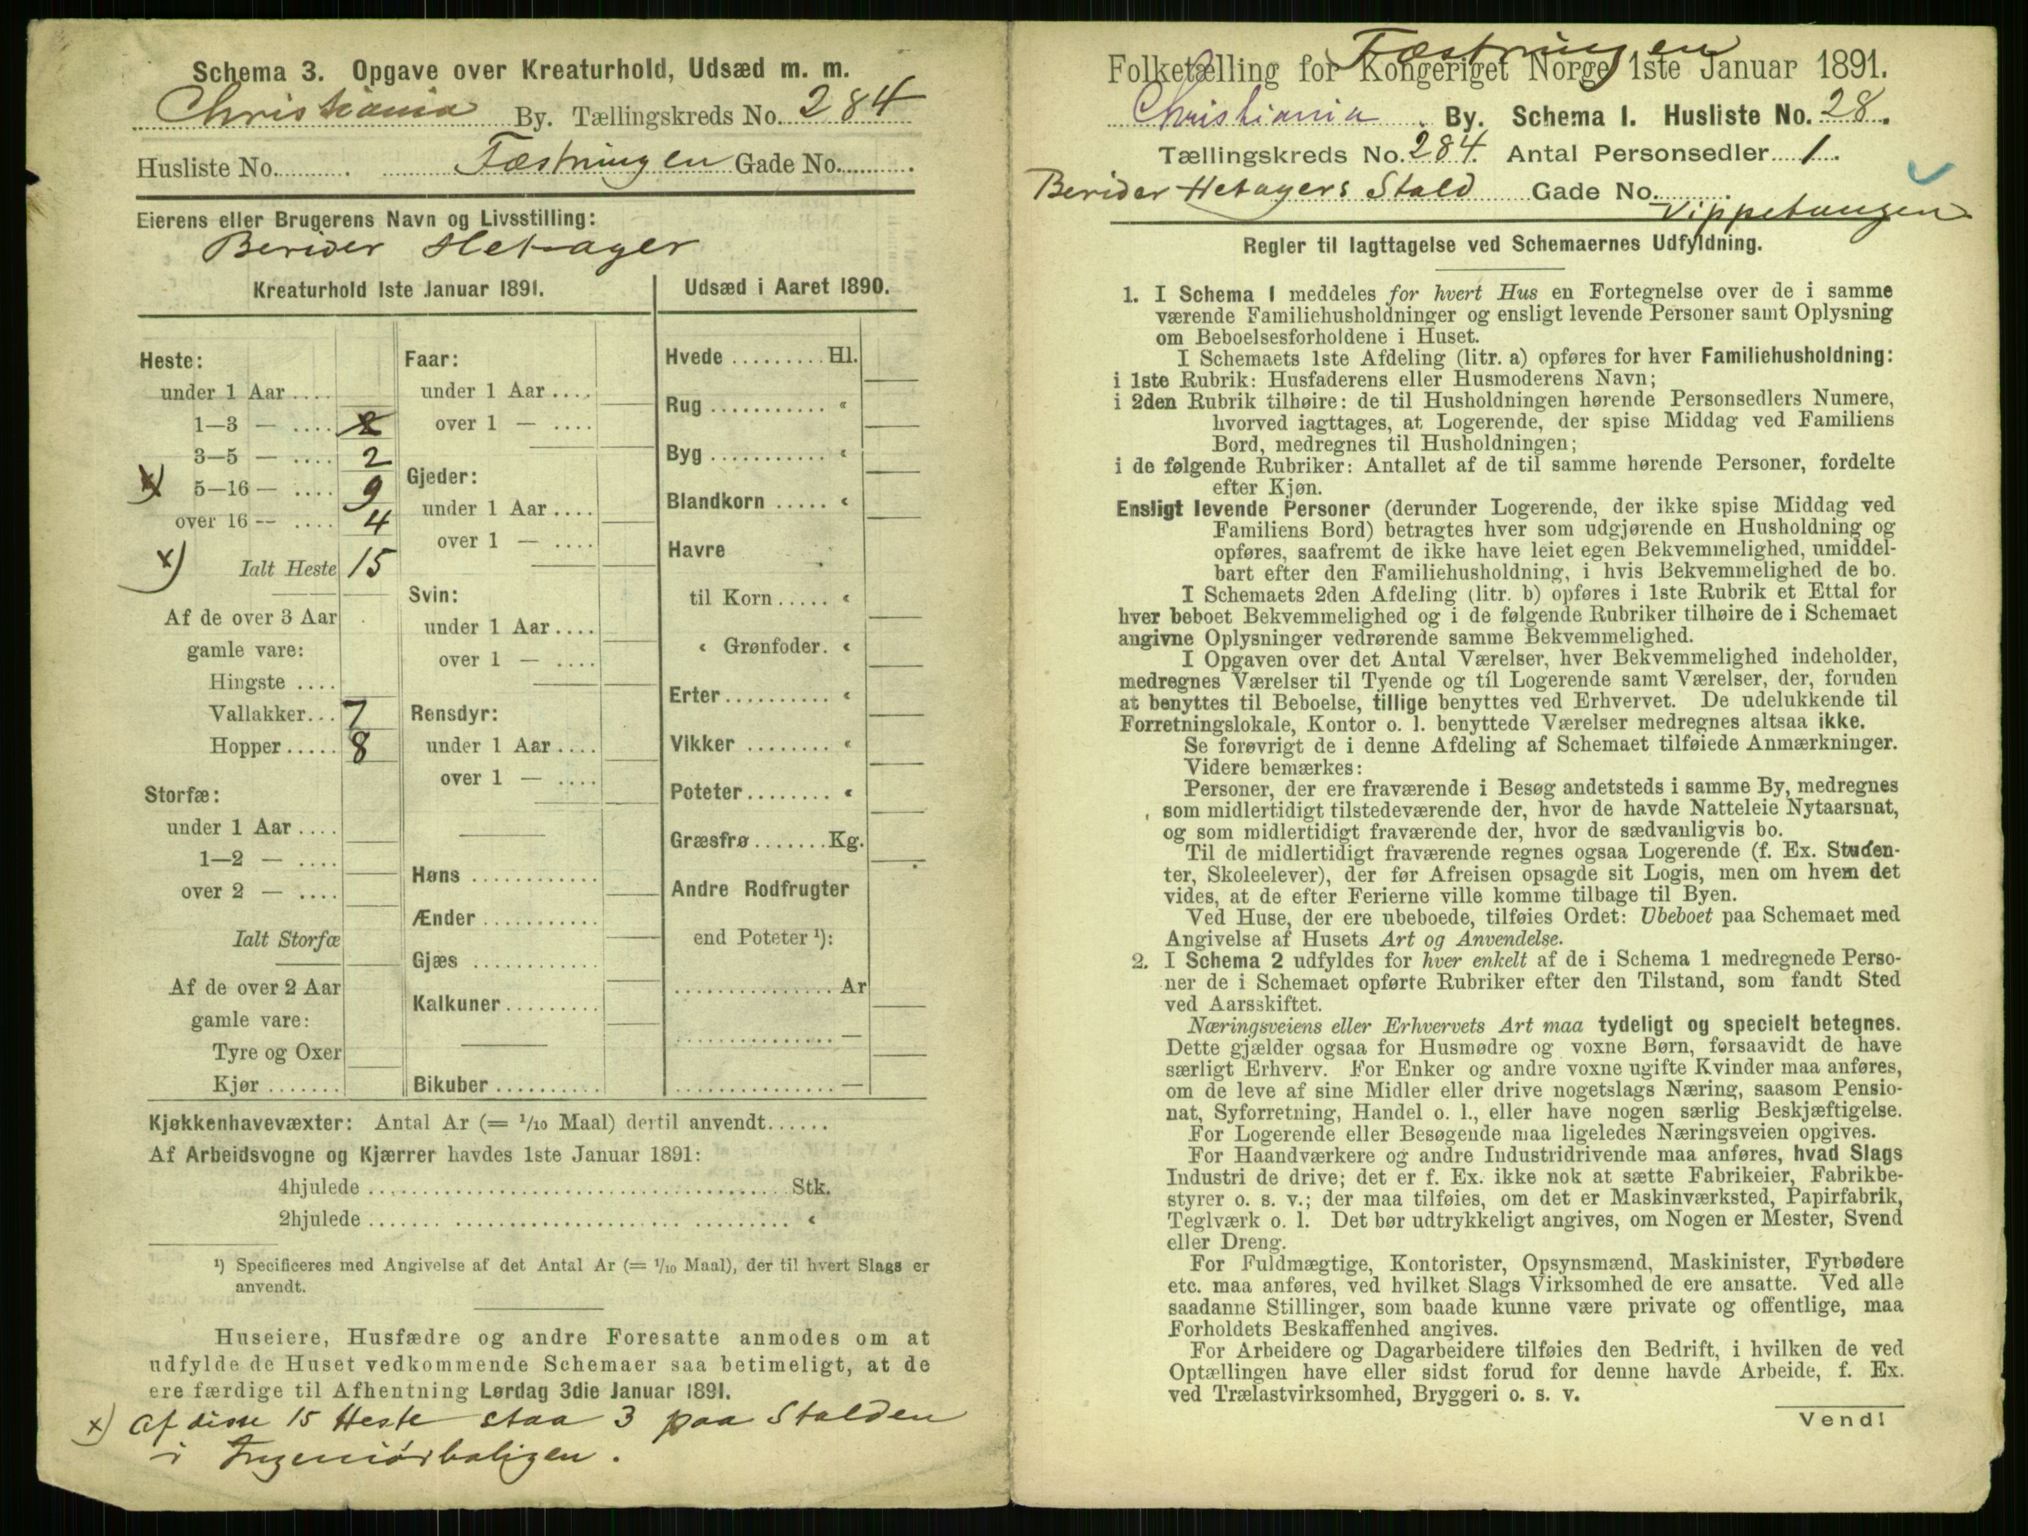 Schema 3. Opgave over Kreaturhold, Udsæd m. m.
Christiania By. Tællingskreds No. 284
Husliste No. Fæstningen Gade No.
Eierens eller Brugerens Navn og Livsstilling:
Berider Hetager
Kreaturhold 1ste Januar 1891.
Heste:
under 1 Aar ....
1—3 — .... 2
3—5 — .... 2
x) 5—16 — .... 9
over 16 — .... 4
x) Ialt Heste 15
Af de over 3 Aar
gamle vare:
Hingste ....
Vallakker... 7
Hopper ..... 8
Storfæ:
under 1 Aar ....
1—2 — ....
over 2 — ....
Ialt Storfæ
Af de over 2 Aar
gamle vare:
Tyre og Oxer
Kjør .......
Faar:
under 1 Aar ....
over 1 — ....
Gjeder:
under 1 Aar ....
over 1 — ....
Svin:
under 1 Aar ....
over 1 — ....
Rensdyr:
under 1 Aar ....
over 1 — ....
Høns ............
Ænder ...........
Gjæs ............
Kalkuner .........
Bikuber ..........
Udsæd i Aaret 1890.
Hvede ......... Hl.
Rug ........... «
Byg ........... «
Blandkorn ..... «
Havre
til Korn ..... «
« Grønfoder. «
Erter .......... «
Vikker ........ «
Poteter ........ «
Græsfrø ....... Kg.
Andre Rodfrugter
end Poteter ¹):
............... Ar
............... —
............... —
Kjøkkenhavevæxter: Antal Ar (= 1/10 Maal) dertil anvendt......
Af Arbeidsvogne og Kjærrer havdes 1ste Januar 1891:
4hjulede ........................................ Stk.
2hjulede ........................................ «
¹) Specificeres med Angivelse af det Antal Ar (= 1/10 Maal), der til hvert Slags er
anvendt.
Huseiere, Husfædre og andre Foresatte anmodes om at
udfylde de Huset vedkommende Schemaer saa betimeligt, at de
ere færdige til Afhentning Lørdag 3die Januar 1891.
x) Af disse 15 Heste staa 3 paa Stalden
i Ingeniørboligen.
Fæstningen
Folketælling for Kongeriget Norge 1ste Januar 1891.
Christiania By. Schema 1. Husliste No. 28.
Tællingskreds No. 284. Antal Personsedler 1.
Berider Hetagers Stald Gade No.
Vippetangen
Regler til Iagttagelse ved Schemaernes Udfyldning.
1. I Schema 1 meddeles for hvert Hus en Fortegnelse over de i samme
værende Familiehusholdninger og ensligt levende Personer samt Oplysning
om Beboelsesforholdene i Huset.
I Schemaets 1ste Afdeling (litr. a) opføres for hver Familiehusholdning:
i 1ste Rubrik: Husfaderens eller Husmoderens Navn;
i 2den Rubrik tilhøire: de til Husholdningen hørende Personsedlers Numere,
hvorved iagttages, at Logerende, der spise Middag ved Familiens
Bord, medregnes til Husholdningen;
i de følgende Rubriker: Antallet af de til samme hørende Personer, fordelte
efter Kjøn.
Ensligt levende Personer (derunder Logerende, der ikke spise Middag ved
Familiens Bord) betragtes hver som udgjørende en Husholdning og
opføres, saafremt de ikke have leiet egen Bekvemmelighed, umiddel-
bart efter den Familiehusholdning, i hvis Bekvemmelighed de bo.
I Schemaets 2den Afdeling (litr. b) opføres i 1ste Rubrik et Ettal for
hver beboet Bekvemmelighed og i de følgende Rubriker tilhøire de i Schemaet
angivne Oplysninger vedrørende samme Bekvemmelighed.
I Opgaven over det Antal Værelser, hver Bekvemmelighed indeholder,
medregnes Værelser til Tyende og til Logerende samt Værelser, der, foruden
at benyttes til Beboelse, tillige benyttes ved Erhvervet. De udelukkende til
Forretningslokale, Kontor o. l. benyttede Værelser medregnes altsaa ikke.
Se forøvrigt de i denne Afdeling af Schemaet tilføiede Anmærkninger.
Videre bemærkes:
Personer, der ere fraværende i Besøg andetsteds i samme By, medregnes
som midlertidigt tilstedeværende der, hvor de havde Natteleie Nytaarsnat,
og som midlertidigt fraværende der, hvor de sædvanligvis bo.
Til de midlertidigt fraværende regnes ogsaa Logerende (f. Ex. Studen-
ter, Skoleelever), der før Afreisen opsagde sit Logis, men om hvem det
vides, at de efter Ferierne ville komme tilbage til Byen.
Ved Huse, der ere ubeboede, tilføies Ordet: Ubeboet paa Schemaet med
Angivelse af Husets Art og Anvendelse.
2. I Schema 2 udfyldes for hver enkelt af de i Schema 1 medregnede Perso-
ner de i Schemaet opførte Rubriker efter den Tilstand, som fandt Sted
ved Aarsskiftet.
Næringsveiens eller Erhvervets Art maa tydeligt og specielt betegnes.
Dette gjælder ogsaa for Husmødre og voxne Børn, forsaavidt de have
særligt Erhverv. For Enker og andre voxne ugifte Kvinder maa anføres,
om de leve af sine Midler eller drive nogetslags Næring, saasom Pensio-
nat, Syforretning, Handel o. l., eller have nogen særlig Beskjæftigelse.
For Logerende eller Besøgende maa ligeledes Næringsveien opgives.
For Haandværkere og andre Industridrivende maa anføres, hvad Slags
Industri de drive; det er f. Ex. ikke nok at sætte Fabrikeier, Fabrikbe-
styrer o. s. v.; der maa tilføies, om det er Maskinværksted, Papirfabrik,
Teglværk o. l. Det bør udtrykkeligt angives, om Nogen er Mester, Svend
eller Dreng.
For Fuldmægtige, Kontorister, Opsynsmænd, Maskinister, Fyrbødere
etc. maa anføres, ved hvilket Slags Virksomhed de ere ansatte. Ved alle
saadanne Stillinger, som baade kunne være private og offentlige, maa
Forholdets Beskaffenhed angives.
For Arbeidere og Dagarbeidere tilføies den Bedrift, i hvilken de ved
Optællingen have eller sidst forud for denne havde Arbeide, f. Ex.
ved Trælastvirksomhed, Bryggeri o. s. v.
Vend!